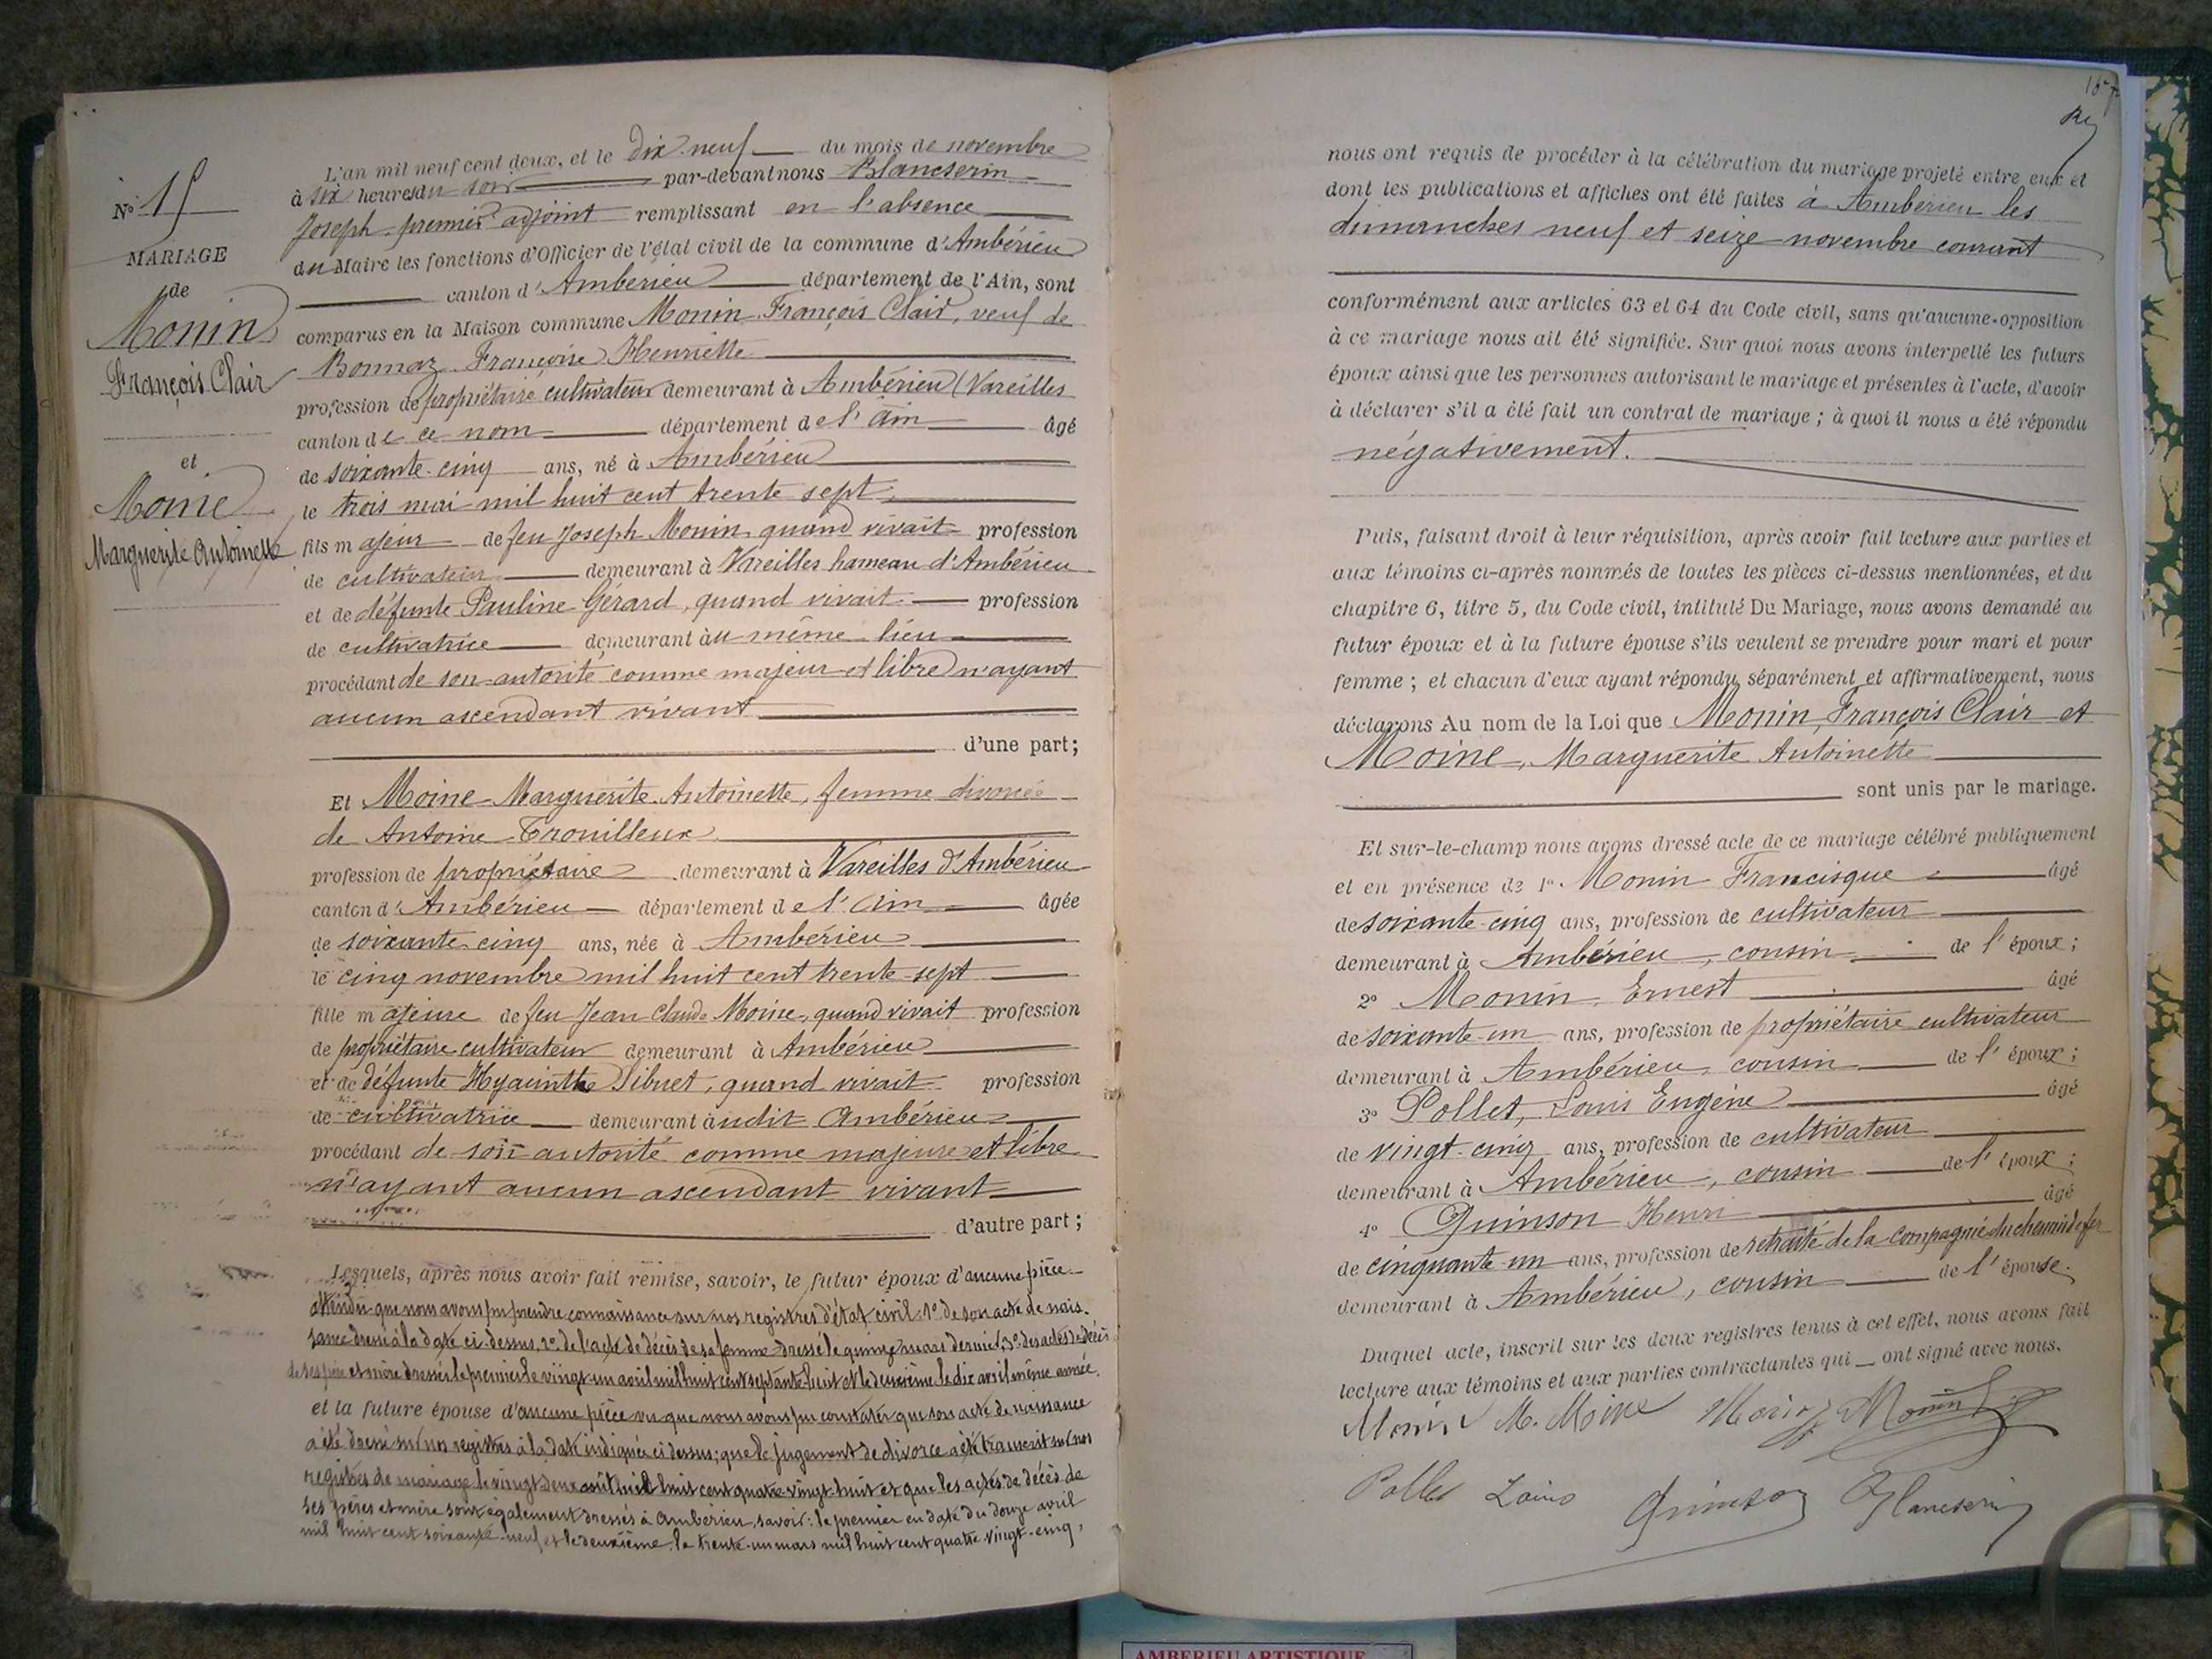 Nº 15
MARIAGE
de
Monin
François Clair
et
Moine
Marguerite Antoinette
L'an mil neuf cent deux, et le dix-neuf du mois de novembre
à six heures du soir par-devant nous Blancserin
Joseph premier adjoint remplissant en l'absence
du Maire les fonctions d'Officier de l'état civil de la commune d'Ambérieu
canton d'Ambérieu département de l'Ain, sont
comparus en la Maison commune Monin François Clair, veuf de
Bonnaz Françoise Henriette
profession de propriétaire cultivateur demeurant à Ambérieu (Vareilles
canton de ce nom département de l'Ain âgé
de soixante-cinq ans, né à Ambérieu
le trois mai mil huit cent trente sept
fils majeur de feu Joseph Monin quand vivait profession
de cultivateur demeurant à Vareilles hameau d'Ambérieu
et de défunte Pauline Gerard, quand vivait profession
de cultivatrice demeurant au même lieu
procédant de son autorité comme majeur et libre n'ayant
aucun ascendant vivant
d'une part;
Et Moine Marguerite Antoinette, femme divorcée
de Antoine Trouilleux
profession de propriétaire demeurant à Vareilles d'Ambérieu
canton d'Ambérieu département de l'Ain âgée
de soixante-cinq ans, née à Ambérieu
le cinq novembre mil huit cent trente-sept
fille majeure de feu Jean Claude Moine, quand vivait profession
de propriétaire cultivateur demeurant à Ambérieu
et de défunte Hyacinthe Sibuet, quand vivait profession
de cultivatrice demeurant audit Ambérieu
procédant de son autorité comme majeure et libre
n'ayant aucun ascendant vivant
d'autre part;
Lesquels, après nous avoir fait remise, savoir, le futur époux d'aucune pièce
attendu que nous avons pu prendre connaissance sur nos registres d'état civil 1º de son acte de nais-
sance dressé à la date ci-dessus, 2º de l'acte de décès de sa femme dressé le quinze mars dernier, 3º des actes de décès
de ses père et mère dressés le premier le vingt-un avril mil huit cent septante huit et le deuxième le dix avril même année.
et la future épouse d'aucune pièce vu que nous avons pu constater que son acte de naissance
a été dressé sur nos registres à la date indiquée ci-dessus; que le jugement de divorce a été transcrit sur nos
registres de mariage le vingt deux août mil huit cent quatre-vingt-huit et que les actes de décès de
ses père et mère sont également dressés à Ambérieu, savoir: le premier en date du douze avril
mil huit cent soixante-neuf et le deuxième le trente-un mars mil huit cent quatre-vingt-cinq,
nous ont requis de procéder à la célébration du mariage projeté entre eux et
dont les publications et affiches ont été faites à Ambérieu les
dimanches neuf et seize novembre courant
conformément aux articles 63 et 64 du Code civil, sans qu'aucune opposition
à ce mariage nous ait été signifiée. Sur quoi nous avons interpellé les futurs
époux ainsi que les personnes autorisant le mariage et présentes à l'acte, d'avoir
à déclarer s'il a été fait un contrat de mariage; à quoi il nous a été répondu
négativement.
Puis, faisant droit à leur réquisition, après avoir fait lecture aux parties et
aux témoins ci-après nommés de toutes les pièces ci-dessus mentionnées, et du
chapitre 6, titre 5, du Code civil, intitulé Du Mariage, nous avons demandé au
futur époux et à la future épouse s'ils veulent se prendre pour mari et pour
femme; et chacun d'eux ayant répondu séparément et affirmativement, nous
déclarons Au nom de la Loi que Monin, François Clair et
Moine, Marguerite Antoinette
sont unis par le mariage.
Et sur-le-champ nous avons dressé acte de ce mariage célébré publiquement
et en présence de 1º Monin Francisque âgé
de soixante-cinq ans, profession de cultivateur
demeurant à Ambérieu, cousin de l'époux;
2º Monin, Ernest âgé
de soixante-un ans, profession de propriétaire cultivateur
demeurant à Ambérieu, cousin de l'époux;
3º Pollet, Louis Eugène âgé
de vingt-cinq ans, profession de cultivateur
demeurant à Ambérieu, cousin de l'époux;
4º Quinson Henri âgé
de cinquante-un ans, profession de retraité de la compagnie du chemin de fer
demeurant à Ambérieu, cousin de l'épouse.
Duquel acte, inscrit sur les deux registres tenus à cet effet, nous avons fait
lecture aux témoins et aux parties contractantes qui ont signé avec nous.
Monin M. Moine Monin Monin
Pollet Louis Quinson Blancserin
AMBERIEU ARTISTIQUE